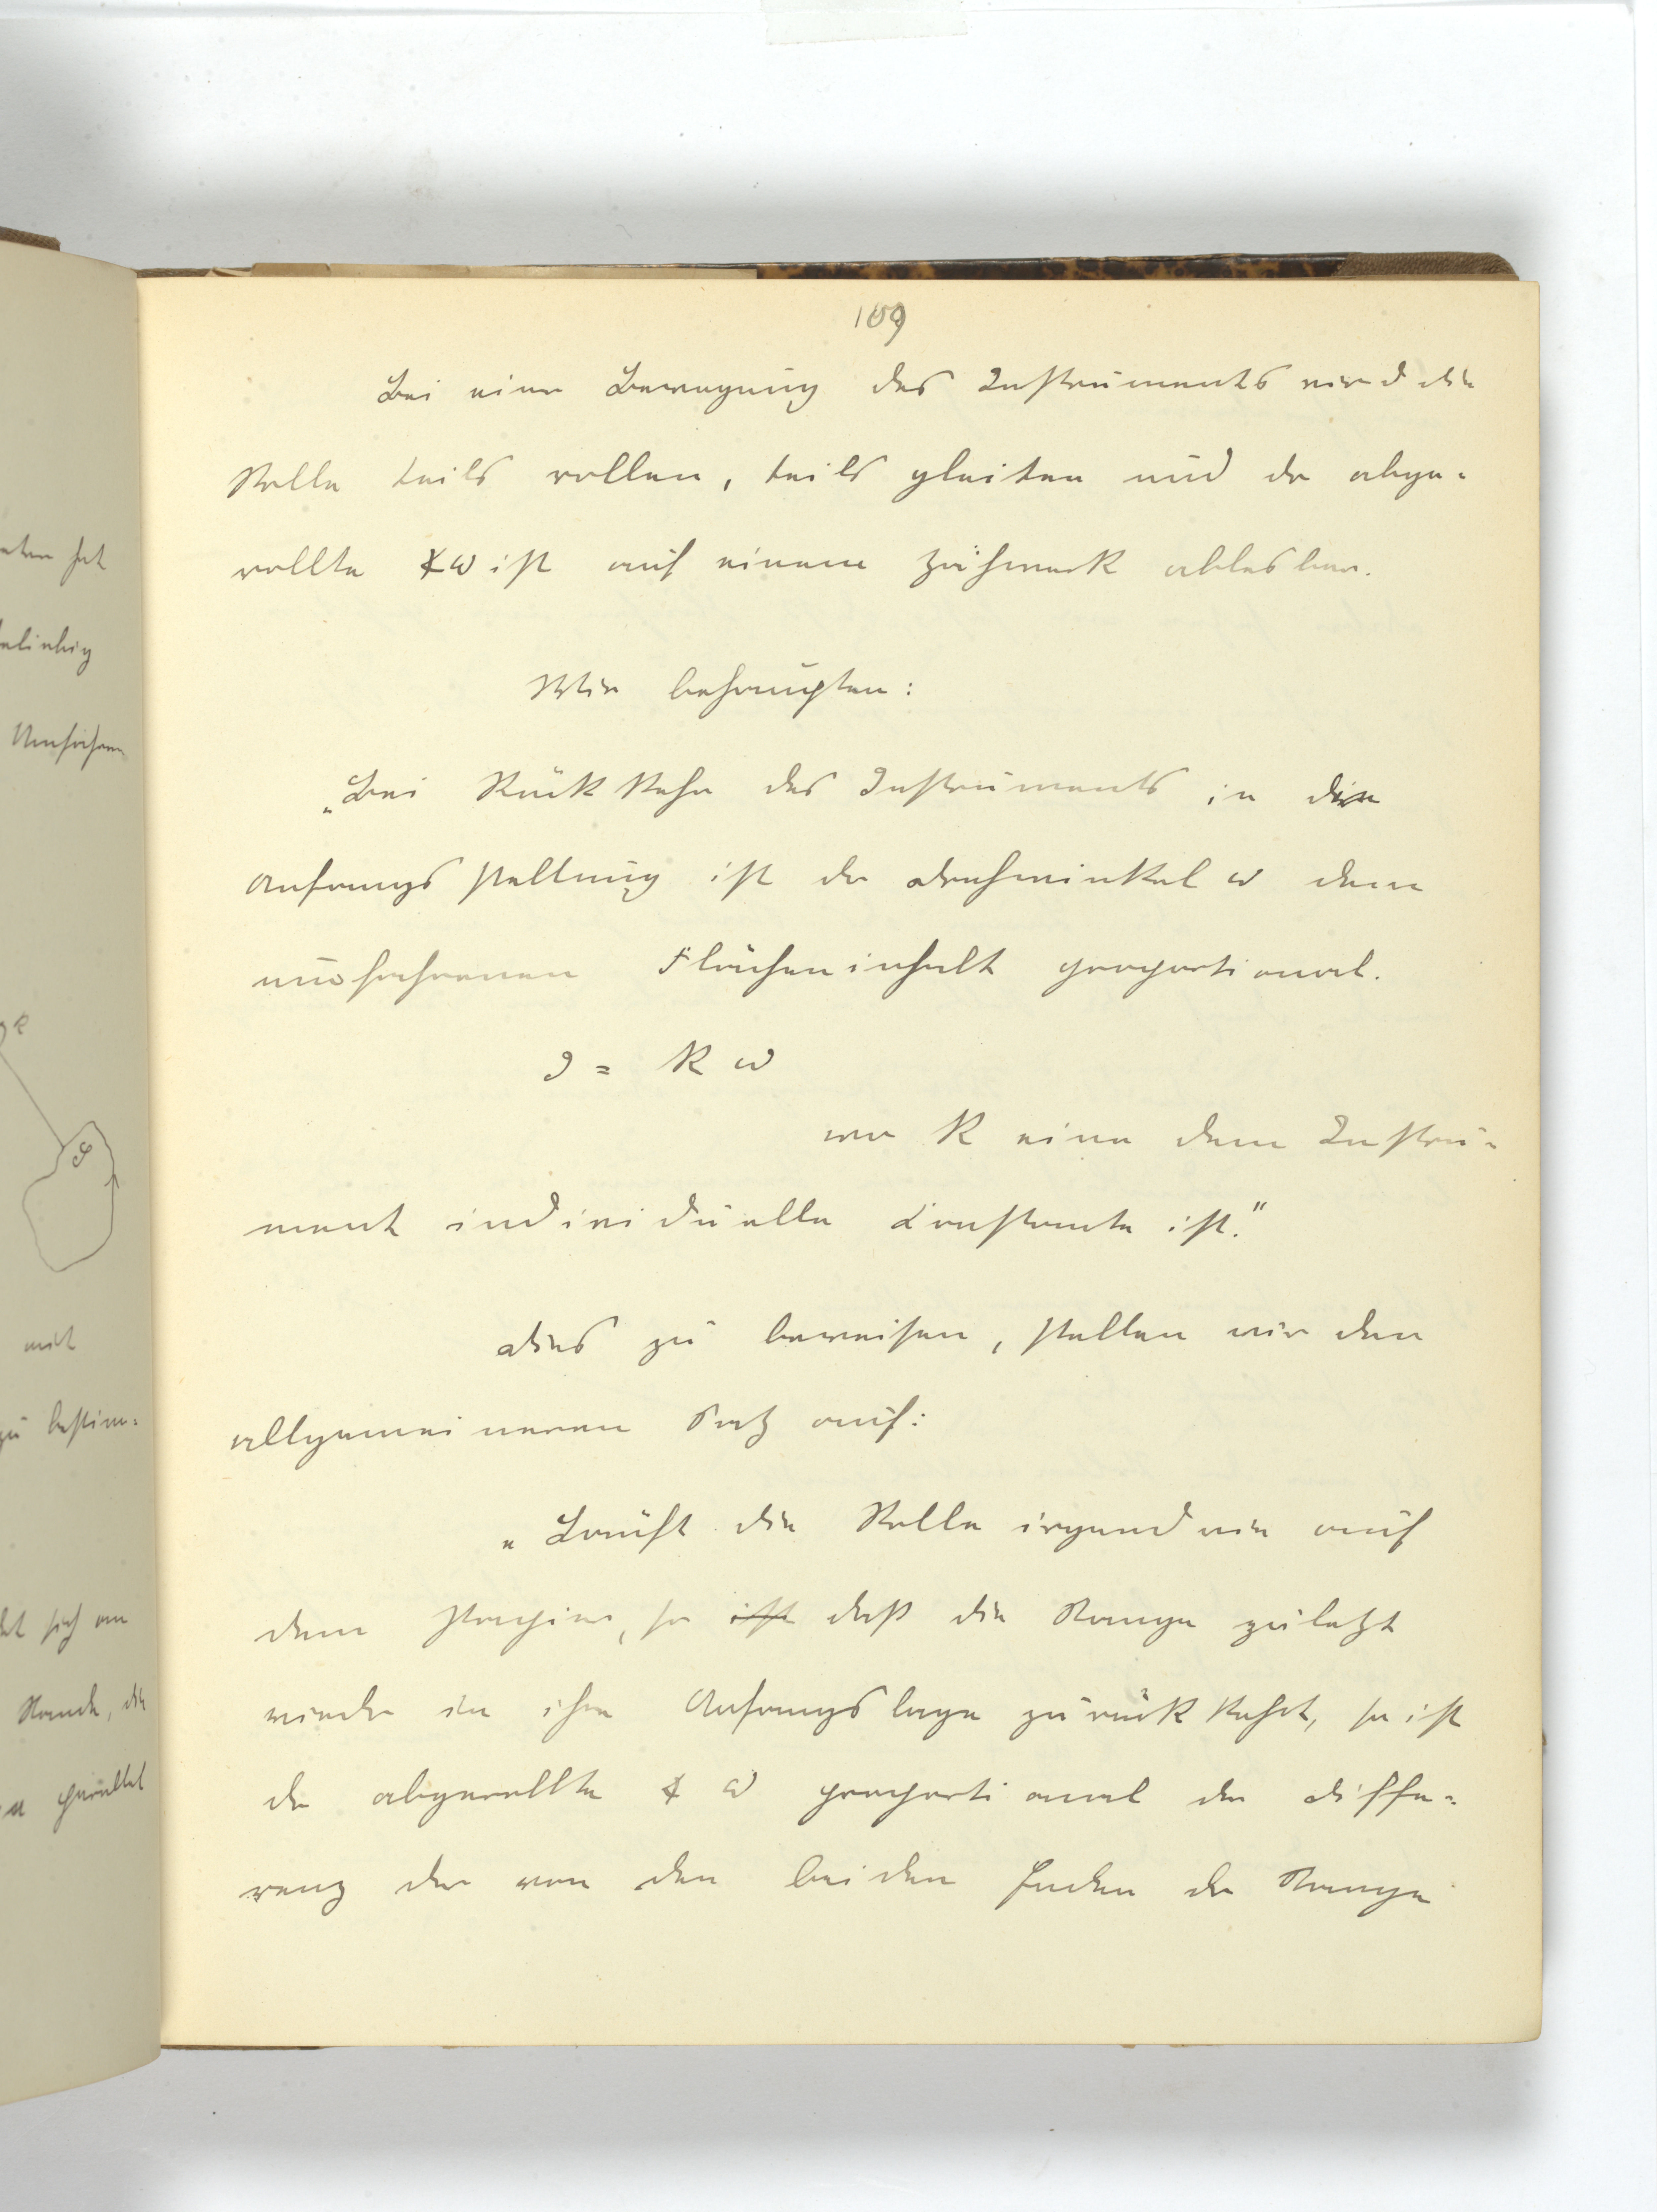 159
Bei einer Bewegung des Instruments wird die
Rolle teils rollen, teils gleiten und der abge-
rollte ∢ ω ist auf einem Zählwerk ablesbar.
Wir behaupten:
„Bei Rückkehr des Instruments in die
Anfangsstellung ist der Drehwinkel ω dem
umfahrenen Flächeninhalt proportional.
J = k ω
wo k eine dem Instru-
ment individuelle Constante ist."
Dies zu beweisen, stellen wir den
allgemeineren Satz auf:
„Läuft die Rolle irgendwie auf
dem Papier, so ist daß die Stange zuletzt
wieder in ihre Anfangslage zurückkehrt, so ist
der abgerollte ∢ ω proportional der Diffe-
renz der von den beiden Enden der Stange
hat
Umfahren
J
mit
zu bestim-
sich am
die